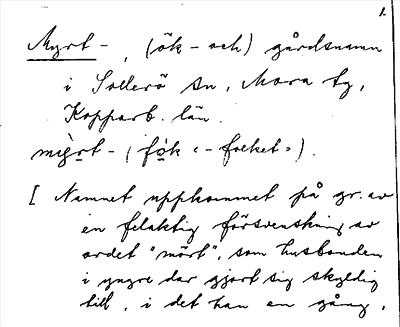 1.
Myrt-, (ök- och) gårdsnamn
i Sollerö sn, Mora tg,
Kopparb. län.
mỳrt- (fo̜k «-folket»).
[ Namnet uppkommet på gr. av
en felaktig försvenskning av
ordet "mört", som husbonden
i yngre dar gjort sig skyldig
till, i det han en gång,